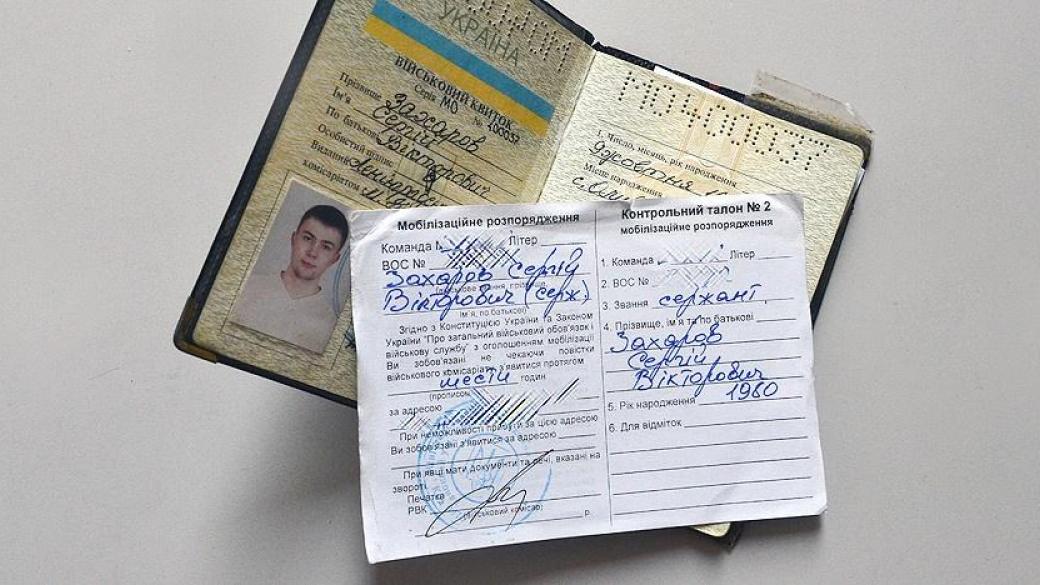 УКРАЇНА
ВІЙСЬКОВИЙ КВИТОК
Серія МО № 400037
Прізвище Захаров
Ім'я Сергій
По батькові Вікторович
Особистий підпис
Виданий
комісаріатом
МО400037
1. Число, місяць, рік народження
жовтня
Місце народження
Мобілізаційне розпорядження
Команда Літер
ВОС №
Захаров Сергій
Вікторович (серж.)
ім'я, по батькові)
Згідно з Конституцією України та Законом
України "Про загальний військовий обов'язок і
військову службу" з оголошенням мобілізації
Ви зобов'язані не чекаючи повістки
військового комісаріату з'явитися протягом
шести годин
(прописом)
за адресою
При неможливості прибути за цією адресою
Ви зобов'язані з'явитися за адресою
При явці мати документи та речі, вказані на
звороті.
Печатка
РВК
(військовий комісар)
р.
Контрольний талон № 2
мобілізаційне розпорядження
1. Команда Літер
2. ВОС №
3. Звання сержант
4. Прізвище, ім'я та по батькові
Захаров
Сергій
Вікторович
5. Рік народження 1960
6. Для відміток